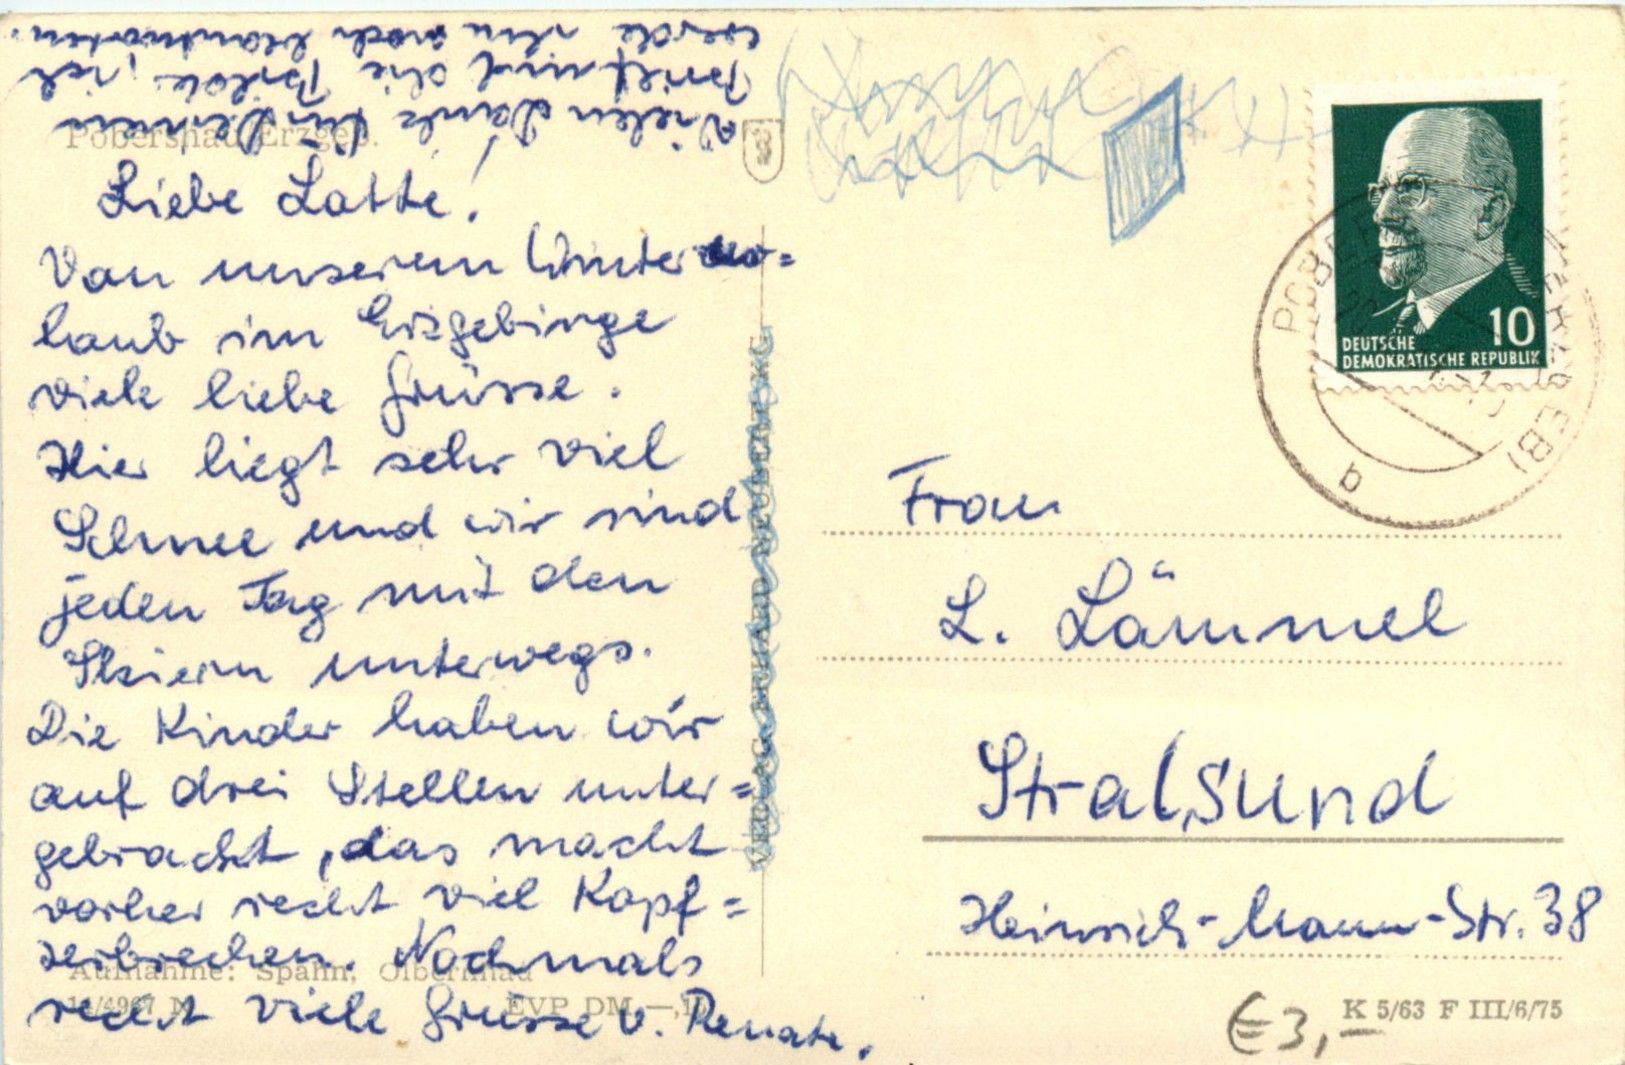 Pobershau/Erzgeb.
Liebe Lotte!
Von unserem Winterur=
laub im Erzgebirge
viele liebe Grüsse.
Hier liegt sehr viel
Schnee und wir sind
jeden Tag mit den
Skiern unterwegs.
Die Kinder haben wir
auf drei Stellen unter=
gebracht, das macht
vorher recht viel Kopf=
zerbrechen. Nochmals
recht viele Grüsse v. Renate.
Vielen Dank für Deinen
Brief und die Bilder, ich
werde ihn noch beantworten.
Aufnahme: Spahn, Olbernhau
EVP DM —,
DEUTSCHE
DEMOKRATISCHE REPUBLIK
10
Frau
L. Lämmel
Stralsund
Heinrich-Mann-Str. 38
K 5/63 F III/6/75
€3,—